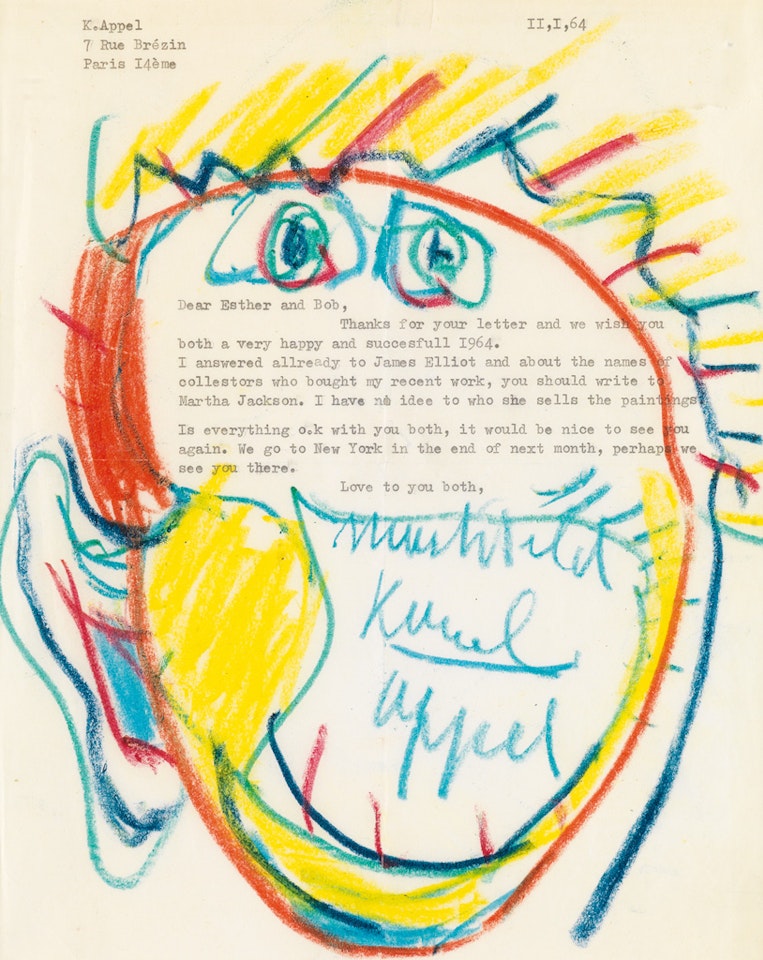 K.Appel
II,I,64
7 Rue Brézin
Paris I4ème
Dear Esther and Bob,
Thanks for your letter and we wish you
both a very happy and succesfull I964.
I answered allready to James Elliot and about the names of
collestors who bought my recent work, you should write to
Martha Jackson. I have no idee to who she sells the paintings
Is everything o.k with you both, it would be nice to see you
again. We go to New York in the end of next month, perhaps we
see you there.
Love to you both,
Machteld
Karel
appel